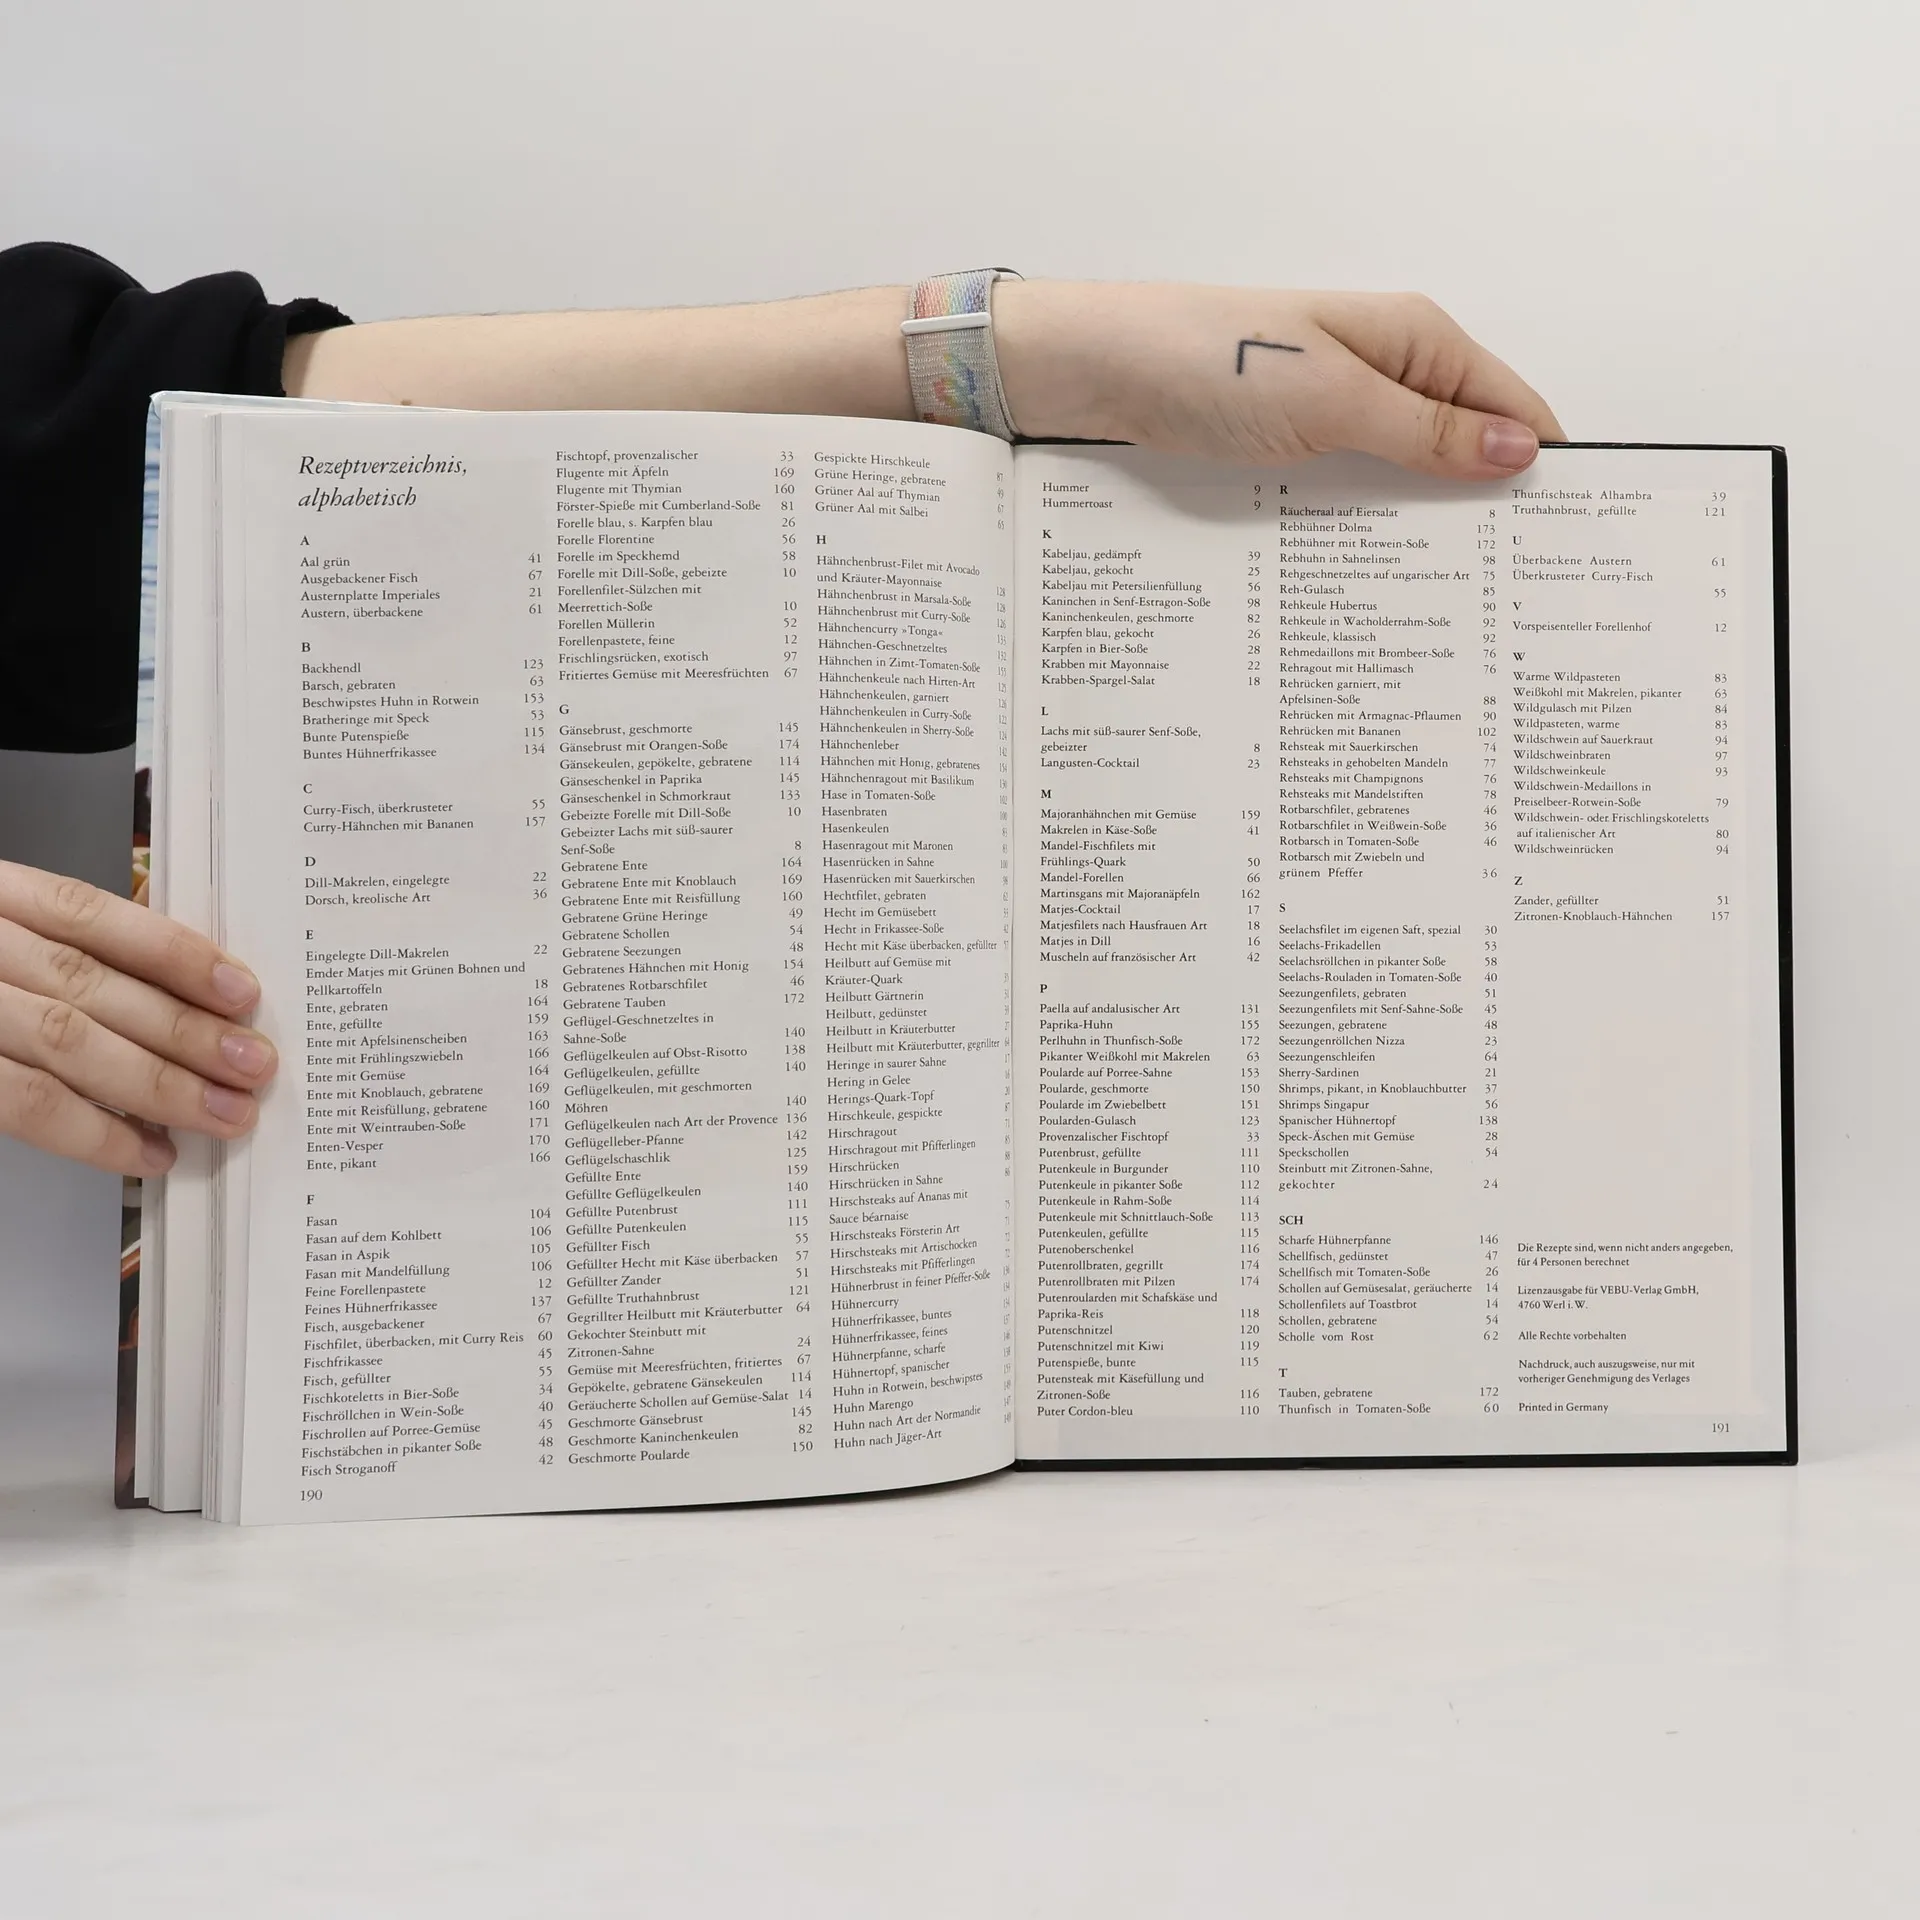 Rezeptverzeichnis,
alphabetisch
A
Aal grün 41
Ausgebackener Fisch 67
Austernplatte Imperiales 21
Austern, überbackene 61
B
Backhendl 123
Barsch, gebraten 63
Beschwipstes Huhn in Rotwein 153
Bratheringe mit Speck 53
Bunte Putenspieße 115
Buntes Hühnerfrikassee 134
C
Curry-Fisch, überkrusteter 55
Curry-Hähnchen mit Bananen 157
D
Dill-Makrelen, eingelegte 22
Dorsch, kreolische Art 36
E
Eingelegte Dill-Makrelen 22
Emder Matjes mit Grünen Bohnen und
Pellkartoffeln 18
Ente, gebraten 164
Ente, gefüllte 159
Ente mit Apfelsinenscheiben 163
Ente mit Frühlingszwiebeln 166
Ente mit Gemüse 164
Ente mit Knoblauch, gebratene 169
Ente mit Reisfüllung, gebratene 160
Ente mit Weintrauben-Soße 171
Enten-Vesper 170
Ente, pikant 166
F
Fasan 104
Fasan auf dem Kohlbett 106
Fasan in Aspik 105
Fasan mit Mandelfüllung 106
Feine Forellenpastete 12
Feines Hühnerfrikassee 137
Fisch, ausgebackener 67
Fischfilet, überbacken, mit Curry Reis 60
Fischfrikassee 45
Fisch, gefüllter 55
Fischkoteletts in Bier-Soße 34
Fischröllchen in Wein-Soße 40
Fischrollen auf Porree-Gemüse 45
Fischstäbchen in pikanter Soße 48
Fisch Stroganoff 42
190
Fischtopf, provenzalischer 33
Flugente mit Äpfeln 169
Flugente mit Thymian 160
Förster-Spieße mit Cumberland-Soße 81
Forelle blau, s. Karpfen blau 26
Forelle Florentine 56
Forelle im Speckhemd 58
Forelle mit Dill-Soße, gebeizte 10
Forellenfilet-Sülzchen mit
Meerrettich-Soße 10
Forellen Müllerin 52
Forellenpastete, feine 12
Frischlingsrücken, exotisch 97
Fritiertes Gemüse mit Meeresfrüchten 67
G
Gänsebrust, geschmorte 145
Gänsebrust mit Orangen-Soße 174
Gänsekeulen, gepökelte, gebratene 114
Gänseschenkel in Paprika 145
Gänseschenkel in Schmorkraut 133
Gebeizte Forelle mit Dill-Soße 10
Gebeizter Lachs mit süß-saurer
Senf-Soße 8
Gebratene Ente 164
Gebratene Ente mit Knoblauch 169
Gebratene Ente mit Reisfüllung 160
Gebratene Grüne Heringe 49
Gebratene Schollen 54
Gebratene Seezungen 48
Gebratenes Hähnchen mit Honig 154
Gebratenes Rotbarschfilet 46
Gebratene Tauben 172
Geflügel-Geschnetzeltes in
Sahne-Soße 140
Geflügelkeulen auf Obst-Risotto 138
Geflügelkeulen, gefüllte 140
Geflügelkeulen, mit geschmorten
Möhren 140
Geflügelkeulen nach Art der Provence 136
Geflügelleber-Pfanne 142
Geflügelschaschlik 125
Gefüllte Ente 159
Gefüllte Geflügelkeulen 140
Gefüllte Putenbrust 111
Gefüllte Putenkeulen 115
Gefüllter Fisch 55
Gefüllter Hecht mit Käse überbacken 57
Gefüllter Zander 51
Gefüllte Truthahnbrust 121
Gegrillter Heilbutt mit Kräuterbutter 64
Gekochter Steinbutt mit
Zitronen-Sahne 24
Gemüse mit Meeresfrüchten, fritiertes 67
Gepökelte, gebratene Gänsekeulen 114
Geräucherte Schollen auf Gemüse-Salat 14
Geschmorte Gänsebrust 145
Geschmorte Kaninchenkeulen 82
Geschmorte Poularde 150
Gespickte Hirschkeule
Grüne Heringe, gebratene
Grüner Aal auf Thymian
Grüner Aal mit Salbei
H
Hähnchenbrust-Filet mit Avocado
und Kräuter-Mayonnaise
Hähnchenbrust in Marsala-Soße
Hähnchenbrust mit Curry-Soße
Hähnchencurry »Tonga«
Hähnchen-Geschnetzeltes
Hähnchen in Zimt-Tomaten-Soße
Hähnchenkeule nach Hirten-Art
Hähnchenkeulen, garniert
Hähnchenkeulen in Curry-Soße
Hähnchenkeulen in Sherry-Soße
Hähnchenleber
Hähnchen mit Honig, gebratenes
Hähnchenragout mit Basilikum
Hase in Tomaten-Soße
Hasenbraten
Hasenkeulen
Hasenragout mit Maronen
Hasenrücken in Sahne
Hasenrücken mit Sauerkirschen
Hechtfilet, gebraten
Hecht im Gemüsebett
Hecht in Frikassee-Soße
Hecht mit Käse überbacken, gefüllter
Heilbutt auf Gemüse mit
Kräuter-Quark
Heilbutt Gärtnerin
Heilbutt, gedünstet
Heilbutt in Kräuterbutter
Heilbutt mit Kräuterbutter, gegrillter
Heringe in saurer Sahne
Hering in Gelee
Herings-Quark-Topf
Hirschkeule, gespickte
Hirschragout
Hirschragout mit Pfifferlingen
Hirschrücken
Hirschrücken in Sahne
Hirschsteaks auf Ananas mit
Sauce béarnaise
Hirschsteaks Försterin Art
Hirschsteaks mit Artischocken
Hirschsteaks mit Pfifferlingen
Hühnerbrust in feiner Pfeffer-Soße
Hühnercurry
Hühnerfrikassee, buntes
Hühnerfrikassee, feines
Hühnerpfanne, scharfe
Hühnertopf, spanischer
Huhn in Rotwein, beschwipstes
Huhn Marengo
Huhn nach Art der Normandie
Huhn nach Jäger-Art
Hummer 9
Hummertoast 9
K
Kabeljau, gedämpft 39
Kabeljau, gekocht 25
Kabeljau mit Petersilienfüllung 56
Kaninchen in Senf-Estragon-Soße 98
Kaninchenkeulen, geschmorte 82
Karpfen blau, gekocht 26
Karpfen in Bier-Soße 28
Krabben mit Mayonnaise 22
Krabben-Spargel-Salat 18
L
Lachs mit süß-saurer Senf-Soße,
gebeizter 8
Langusten-Cocktail 23
M
Majoranhähnchen mit Gemüse 159
Makrelen in Käse-Soße 41
Mandel-Fischfilets mit
Frühlings-Quark 50
Mandel-Forellen 66
Martinsgans mit Majoranäpfeln 162
Matjes-Cocktail 17
Matjesfilets nach Hausfrauen Art 18
Matjes in Dill 16
Muscheln auf französischer Art 42
P
Paella auf andalusischer Art 131
Paprika-Huhn 155
Perlhuhn in Thunfisch-Soße 172
Pikanter Weißkohl mit Makrelen 63
Poularde auf Porree-Sahne 153
Poularde, geschmorte 150
Poularde im Zwiebelbett 151
Poularden-Gulasch 123
Provenzalischer Fischtopf 33
Putenbrust, gefüllte 111
Putenkeule in Burgunder 110
Putenkeule in pikanter Soße 112
Putenkeule in Rahm-Soße 114
Putenkeule mit Schnittlauch-Soße 113
Putenkeulen, gefüllte 115
Putenoberschenkel 116
Putenrollbraten, gegrillt 174
Putenrollbraten mit Pilzen 174
Putenrouladen mit Schafskäse und
Paprika-Reis 118
Putenschnitzel 120
Putenschnitzel mit Kiwi 119
Putenspieße, bunte 115
Putensteak mit Käsefüllung und
Zitronen-Soße 116
Puter Cordon-bleu 110
R
Räucheraal auf Eiersalat 8
Rebhühner Dolma 173
Rebhühner mit Rotwein-Soße 172
Rebhuhn in Sahnelinsen 98
Rehgeschnetzeltes auf ungarischer Art 75
Reh-Gulasch 85
Rehkeule Hubertus 90
Rehkeule in Wacholderrahm-Soße 92
Rehkeule, klassisch 92
Rehmedaillons mit Brombeer-Soße 76
Rehragout mit Hallimasch 76
Rehrücken garniert, mit
Apfelsinen-Soße 88
Rehrücken mit Armagnac-Pflaumen 90
Rehrücken mit Bananen 102
Rehsteak mit Sauerkirschen 74
Rehsteaks in gehobelten Mandeln 77
Rehsteaks mit Champignons 76
Rehsteaks mit Mandelstiften 78
Rotbarschfilet, gebratenes 46
Rotbarschfilet in Weißwein-Soße 36
Rotbarsch in Tomaten-Soße 46
Rotbarsch mit Zwiebeln und
grünem Pfeffer 36
S
Seelachsfilet im eigenen Saft, spezial 30
Seelachs-Frikadellen 53
Seelachsröllchen in pikanter Soße 58
Seelachs-Rouladen in Tomaten-Soße 40
Seezungenfilets, gebraten 51
Seezungenfilets mit Senf-Sahne-Soße 45
Seezungen, gebratene 48
Seezungenröllchen Nizza 23
Seezungenschleifen 64
Sherry-Sardinen 21
Shrimps, pikant, in Knoblauchbutter 37
Shrimps Singapur 56
Spanischer Hühnertopf 138
Speck-Äschen mit Gemüse 28
Speckschollen 54
Steinbutt mit Zitronen-Sahne,
gekochter 24
SCH
Scharfe Hühnerpfanne 146
Schellfisch, gedünstet 47
Schellfisch mit Tomaten-Soße 26
Schollen auf Gemüsesalat, geräucherte 14
Schollenfilets auf Toastbrot 14
Schollen, gebratene 54
Scholle vom Rost 62
T
Tauben, gebratene 172
Thunfisch in Tomaten-Soße 60
Thunfischsteak Alhambra 39
Truthahnbrust, gefüllte 121
U
Überbackene Austern 61
Überkrusteter Curry-Fisch
55
V
Vorspeisenteller Forellenhof 12
W
Warme Wildpasteten 83
Weißkohl mit Makrelen, pikanter 63
Wildgulasch mit Pilzen 84
Wildpasteten, warme 83
Wildschwein auf Sauerkraut 94
Wildschweinbraten 97
Wildschweinkeule 93
Wildschwein-Medaillons in
Preiselbeer-Rotwein-Soße 79
Wildschwein- oder Frischlingskoteletts
auf italienischer Art 80
Wildschweinrücken 94
Z
Zander, gefüllter 51
Zitronen-Knoblauch-Hähnchen 157
Die Rezepte sind, wenn nicht anders angegeben,
für 4 Personen berechnet
Lizenzausgabe für VEBU-Verlag GmbH,
4760 Werl i. W.
Alle Rechte vorbehalten
Nachdruck, auch auszugsweise, nur mit
vorheriger Genehmigung des Verlages
Printed in Germany
191